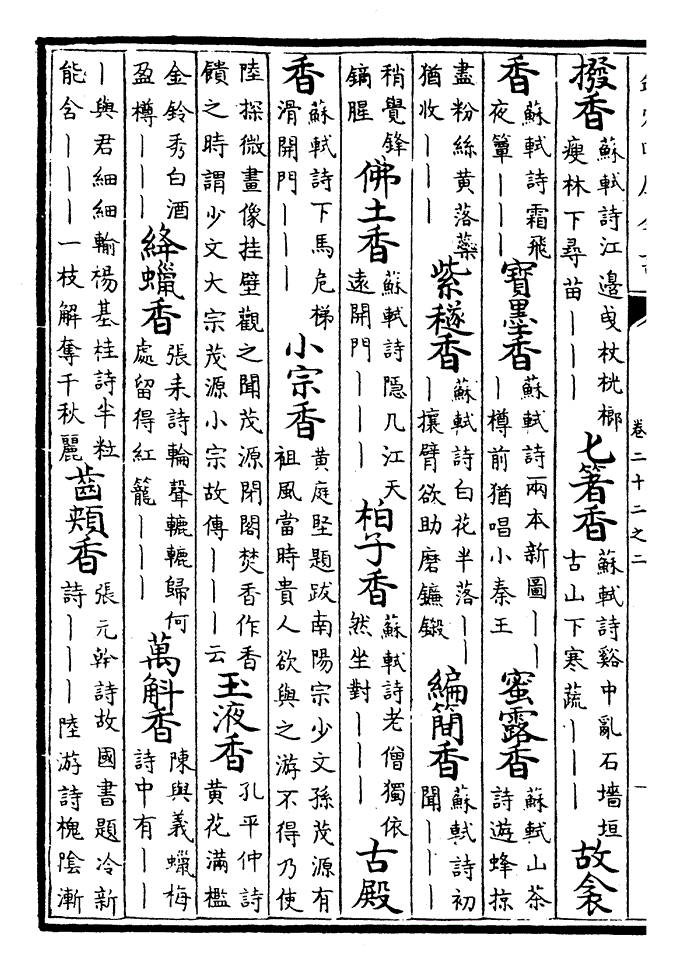 卷二十二之二
撥香蘇軾詩江邊曳杖桄榔瘦林下尋苗｜｜｜匕箸香蘇軾詩谿中亂石墻垣古山下寒蔬｜｜｜故衾
香蘇軾詩霜飛夜簟｜｜｜寶墨香蘇軾詩兩本新圖｜｜｜樽前猶唱小秦王蜜露香蘇軾山茶詩遊蜂掠
盡粉絲黄落蘂猶收｜｜｜紫穟香蘇軾詩白花半落｜｜｜攘臂欲助磨鐮鍛編簡香蘇軾詩初聞｜｜｜
稍覺鋒鏑腥佛土香蘇軾詩隠几江天遠開門｜｜｜柏子香蘇軾詩老僧獨依然坐對｜｜｜古殿
香蘇軾詩下馬危梯滑開門｜｜｜小宗香黄庭堅題跋南陽宗少文孫茂源有祖風當時貴人欲與之游不得乃使
陸探微畫像挂壁觀之聞茂源閉閤焚香作香饋之時謂少文大宗茂源小宗故傳｜｜｜云玉液香孔平仲詩黄花滿檻
金鈴秀白酒盈樽｜｜｜絳蠟香張耒詩輪聲轆轆歸何處留得紅籠｜｜｜萬斛香陳與義蠟梅詩中有｜｜
｜與君細細輸楊基桂詩半粒能含｜｜｜一枝解奪千秋麗齒頰香張元幹詩故國書題冷新詩｜｜｜陸游詩槐陰漸